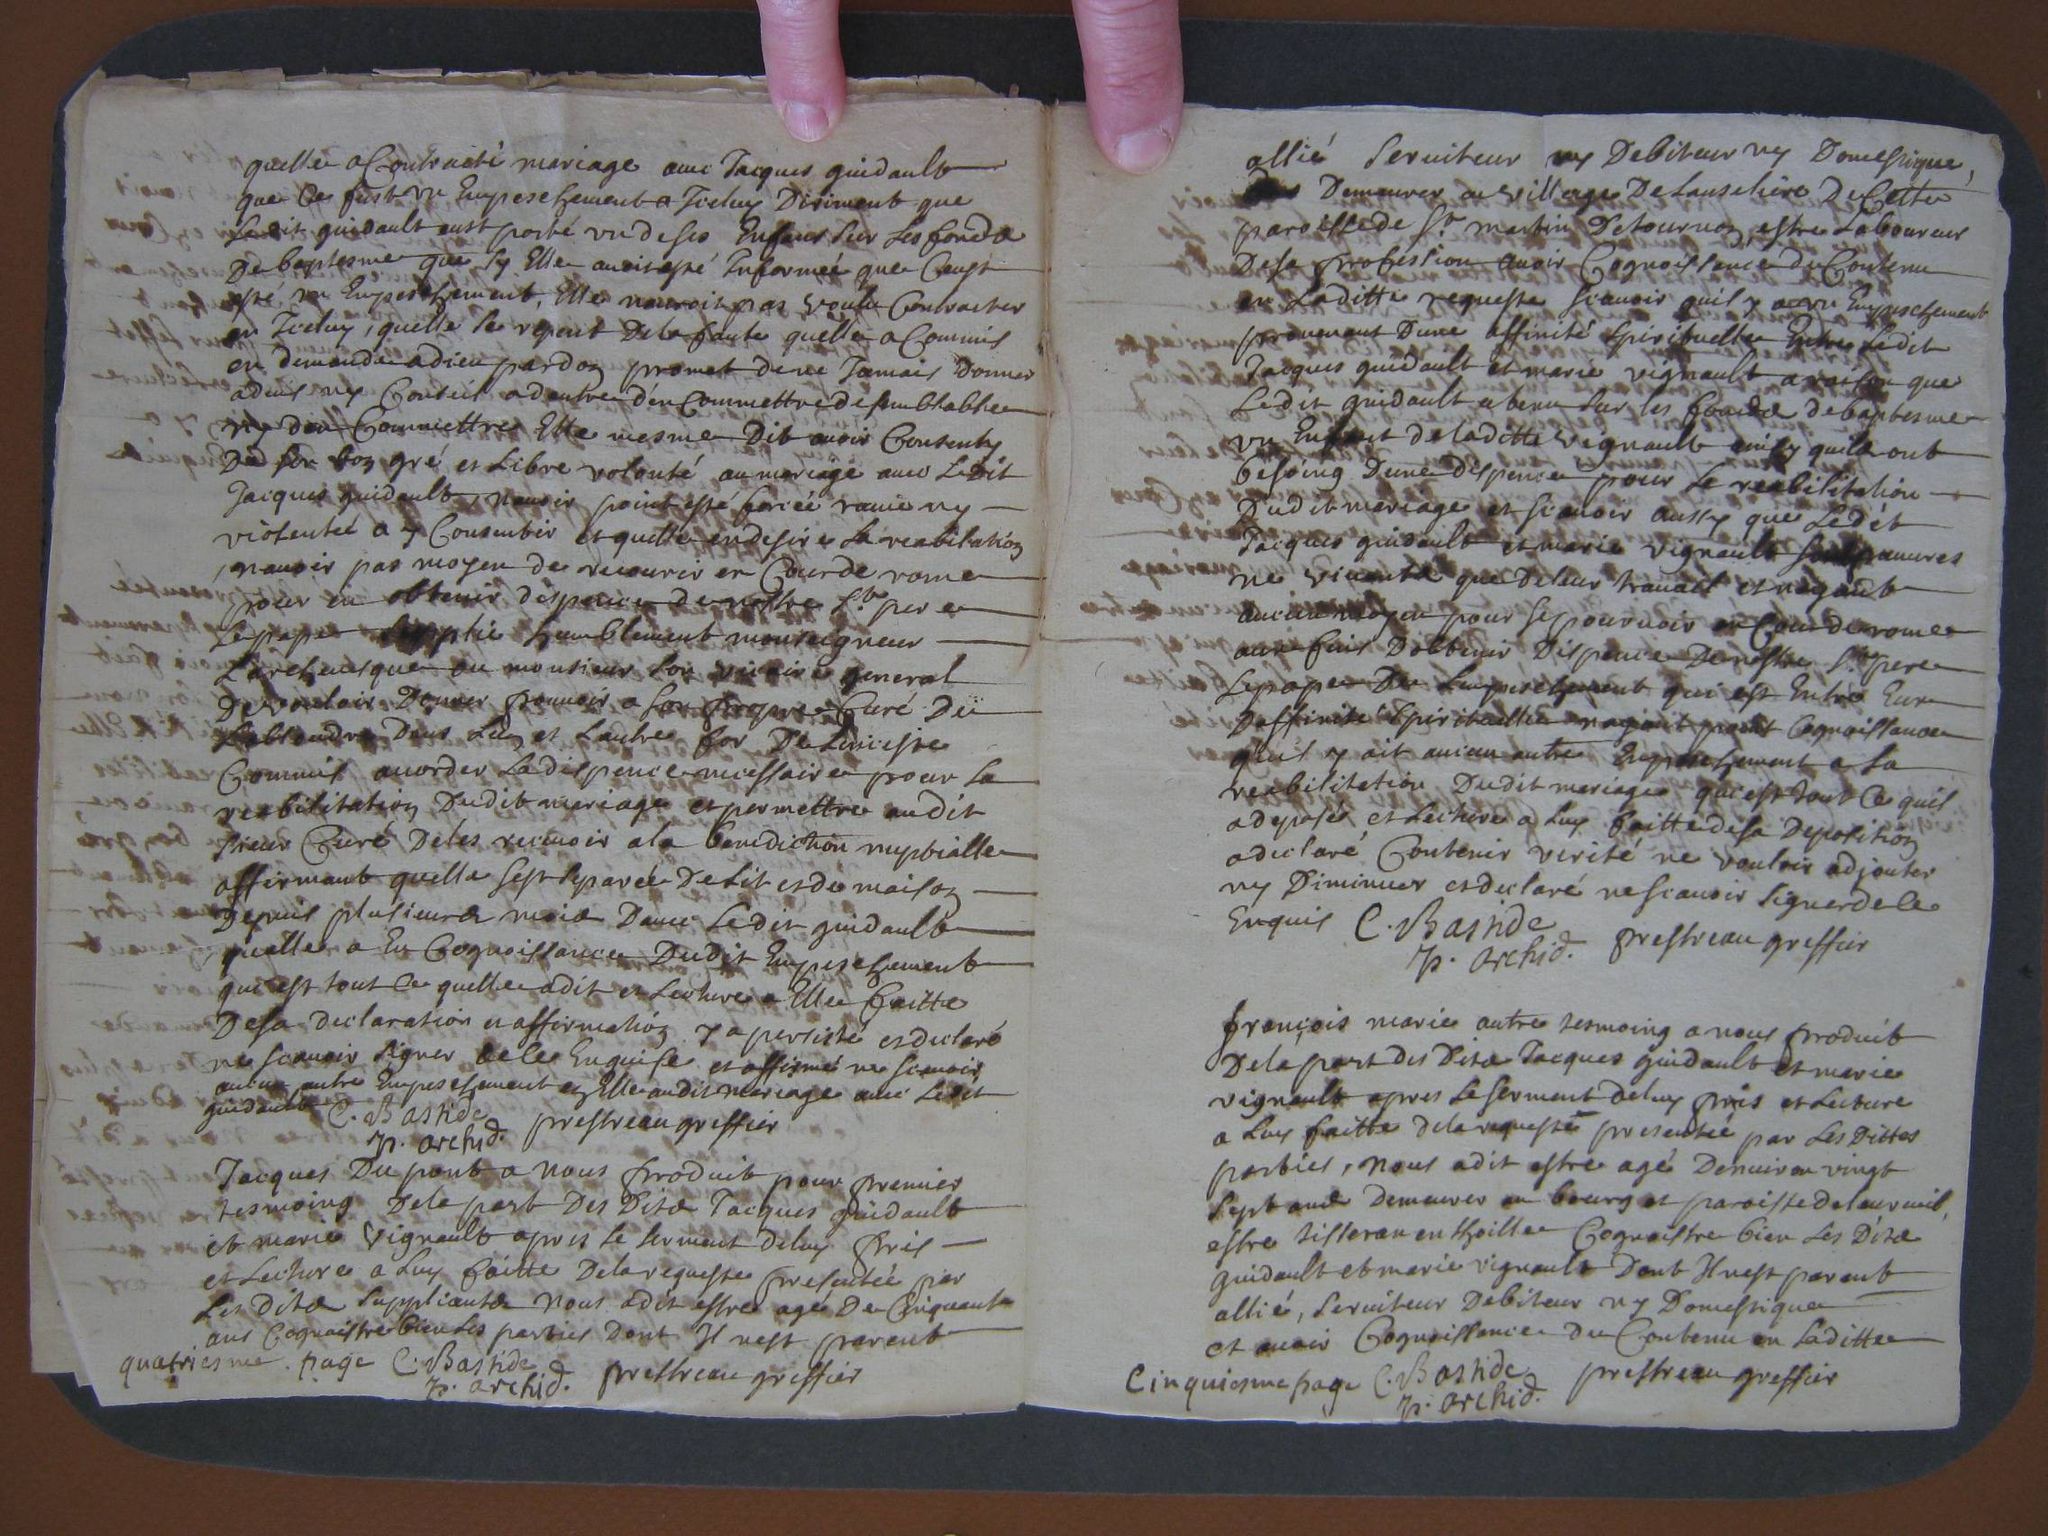 quelle a Contracté mariage avec Jacques guidault
que Ce fust un Empeschement a Iceluy Diriment que
Ledit guidault eust porté un de ses Enfans sur Les fonds
De baptesme que sy Elle avoit esté Informée que Ceust
esté un Empeschement, Elle nauroit pas voulu Contracter
en Iceluy, quelle se repent De la faute quelle a Commis
en demande a dieu pardon promet de ne Jamais Donner
advis ny Conseil a dautre den Commettre de semblable
ny den Commettre Elle mesme Dit avoir Consenty
De son bon gré et Libre volonté au mariage avec Ledit
Jacques guidault, navoir point esté forcée ravie ny
violentée a y Consentir et quelle en desire La reabilation
, navoir pas moyen de recourir en Cour de rome
pour en obtenir dispence de nostre St. pere
Le pape supplie humblement monseigneur
Larchevesque ou monsieur son vicaire general
De vouloir Donner pouvoir a son propre Curé De
Labsoudre Dans Lun et Lautre for De Linceste
Commis accorder La dispence necessaire pour La
reabilitation Dudit mariage et permettre audit
sieur Curé De les recevoir a la benediction nuptialle
affirmant quelle sest separée De Lit et de maison
Depuis plusieurs mois Davec Ledit guidault
quelle a Eu Cognoissance Dudit Empeschement
qui est tout Ce quelle a dit et Lecture a Elle faitte
De sa declaration et affirmation y a persisté et declaré
ne scavoir signer de ce Enquise et affirmé ne scavoir
aucun autre Empeschement en Elle audit mariage avec Ledit
guidault C. Bastide prestre au greffier
p. archid.
Jacques Du pont a nous produit pour premier
tesmoing De la part Des Dits Jacques guidault
et marie vignault apres Le serment de luy pris
et Lecture a Luy faitte De la requeste presentée par
Les Dits suppliants Nous a dit estre agé De Cinquante
ans Cognoistre bien Les parties Dont Il nest parent
quatriesme page C. Bastide prestre au greffier
p. archid.
allié serviteur ny Debiteur ny Domestique,
Demeurer au village De De Cette
paroisse de St. martin De tournon, estre Laboureur
De sa profession avoir Cognoissance du Contenu
en Laditte requeste scavoir quil y a un Empeschement
provenant Dune affinité spirituelle Entre Ledit
Jacques guidault et marie vignault a raison que
Ledit guidault a tenu sur les fonds de baptesme
un Enfant de laditte vignault ainsy quils ont
besoing Dune dispence pour Le reabilitation
Dudit mariage et scavoir aussy que Ledit
Jacques guidault et marie vignault sont pauvres
ne vivants que De leur travail et nayant
aucun moyen pour se pourvoir en Cour de rome
aux fins Dobtenir Dispence De nostre St. pere
Le pape De Lempeschement qui est Entre Eux
Daffinité spirituelle nayant point Cognoissance
quil y ait aucun autre Empeschement a La
reabilitation Dudit mariage qui est tout Ce quil
a deposé, et Lecture a Luy faitte de sa Deposition
a declaré Contenir verité ne vouloir adjouter
ny Diminuer et declaré ne scavoir signer de ce
Enquis C. Bastide prestre au greffier
p. archid.
françois marie autre tesmoing a nous produit
De la part des Dits Jacques guidault et marie
vignault apres Le serment de luy pris et Lecture
a Luy faitte de la requeste presentée par Les Dittes
parties, Nous a dit estre agé Denviron vingt
sept ans Demeurer au bourg et paroisse de
estre tisseran en thoille Cognoistre bien Les Dits
guidault et marie vignault Dont Il nest parent
allié, serviteur Debiteur ny Domestique
et avoir Cognoissance du Contenu en Laditte
Cinquiesme page C. Bastide prestre au greffier
p. archid.